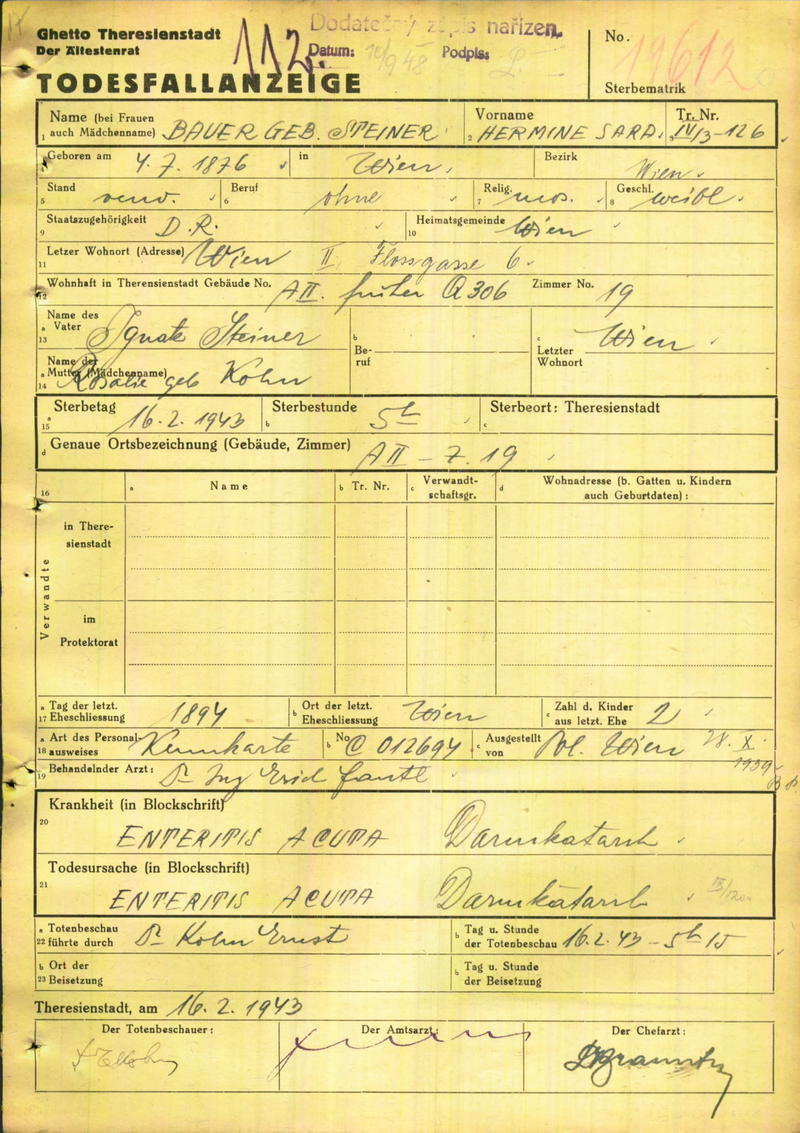 Ghetto Theresienstadt
Der Ältestenrat
112.
Dodatečný zápis nařízen.
Datum: 10/9 48 Podpis:
No. 19612
Sterbematrik
TODESFALLANZEIGE
Name (bei Frauen auch Mädchenname) BAUER GEB. STEINER
1
Vorname HERMINE SARA.
2
Tr. Nr. IV/3-126
3
Geboren am 4. 7. 1876 in Wien. Bezirk Wien
Stand verw. Beruf ohne Relig. mos. Geschl. weibl.
5 6 7 8
Staatszugehörigkeit D.R. Heimatsgemeinde Wien
9 10
Letzer Wohnort (Adresse) Wien II Flossgasse 6.
11
Wohnhaft in Theresienstadt Gebäude No. A II. früher Q 306 Zimmer No. 19
12
a Name des Vater Ignatz Steiner
13
b Beruf
c Letzter Wohnort Wien
a Name der Mutter (Mädchenname) Rosalie geb Kohn
14
a Sterbetag 16. 2. 1943 b Sterbestunde 5h c Sterbeort: Theresienstadt
15
d Genaue Ortsbezeichnung (Gebäude, Zimmer) A II - Z. 19
16 a Name b Tr. Nr. c Verwandtschaftsgr. d Wohnadresse (b. Gatten u. Kindern auch Geburtdaten) :
Verwandte
in Theresienstadt
im Protektorat
a Tag der letzt. 17 Eheschliessung 1894 b Ort der letzt. Eheschliessung Wien c Zahl d. Kinder aus letzt. Ehe 2
a Art des Personal- 18 ausweises Kennkarte b No C 012694 c Ausgestellt von Pol. Wien 28. X. 1939
19 Behandelnder Arzt: Dr Ing Erich Fantl
Krankheit (in Blockschrift)
20
ENTERITIS ACUTA Darmkatarrh
Todesursache (in Blockschrift)
21
ENTERITIS ACUTA Darmkatarrh
a Totenbeschau 22 führte durch Dr Kohn Ernst b Tag u. Stunde der Totenbeschau 16. 2. 43 - 5h 15
b Ort der 23 Beisetzung b Tag u. Stunde der Beisetzung
Theresienstadt, am 16. 2. 1943
Der Totenbeschauer: Der Amtsarzt: Der Chefarzt: